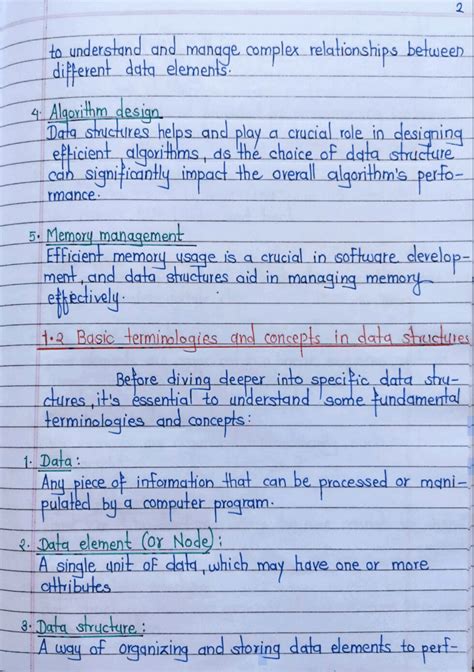 2
to understand and manage complex relationships between
different data elements.
4. Algorithm design
Data structures helps and play a crucial role in designing
efficient algorithms, as the choice of data structure
can significantly impact the overall algorithm's perfo-
rmance.
5. Memory management
Efficient memory usage is a crucial in software develop-
ment, and data structures aid in managing memory
effectively.
1.2 Basic terminologies and concepts in data structures
Before diving deeper into specific data stru-
ctures, it's essential to understand some fundamental
terminologies and concepts:
1. Data:
Any piece of information that can be processed or mani-
pulated by a computer program.
2. Data element (Or Node):
A single unit of data, which may have one or more
attributes
3. Data structure:
A way of organizing and storing data elements to perf-